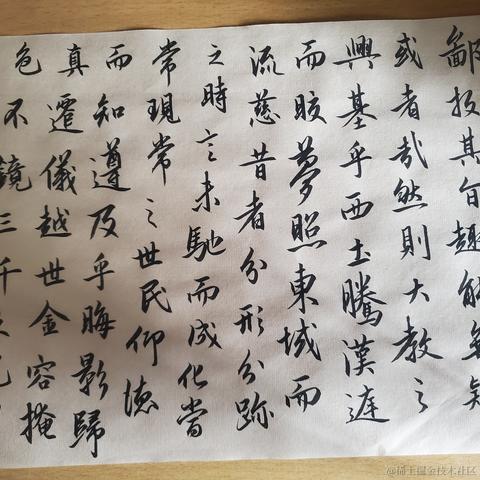 鄙投其旨趣能無疑
或者哉然則大教之
興基乎西土騰漢庭
而晈夢照東域而
流慈昔者分形分跡
之時言未馳而成化當
常現常之世民仰德
而知遵及乎晦影歸
真遷儀越世金容掩
色不鏡三千之光
@稀土掘金技术社区